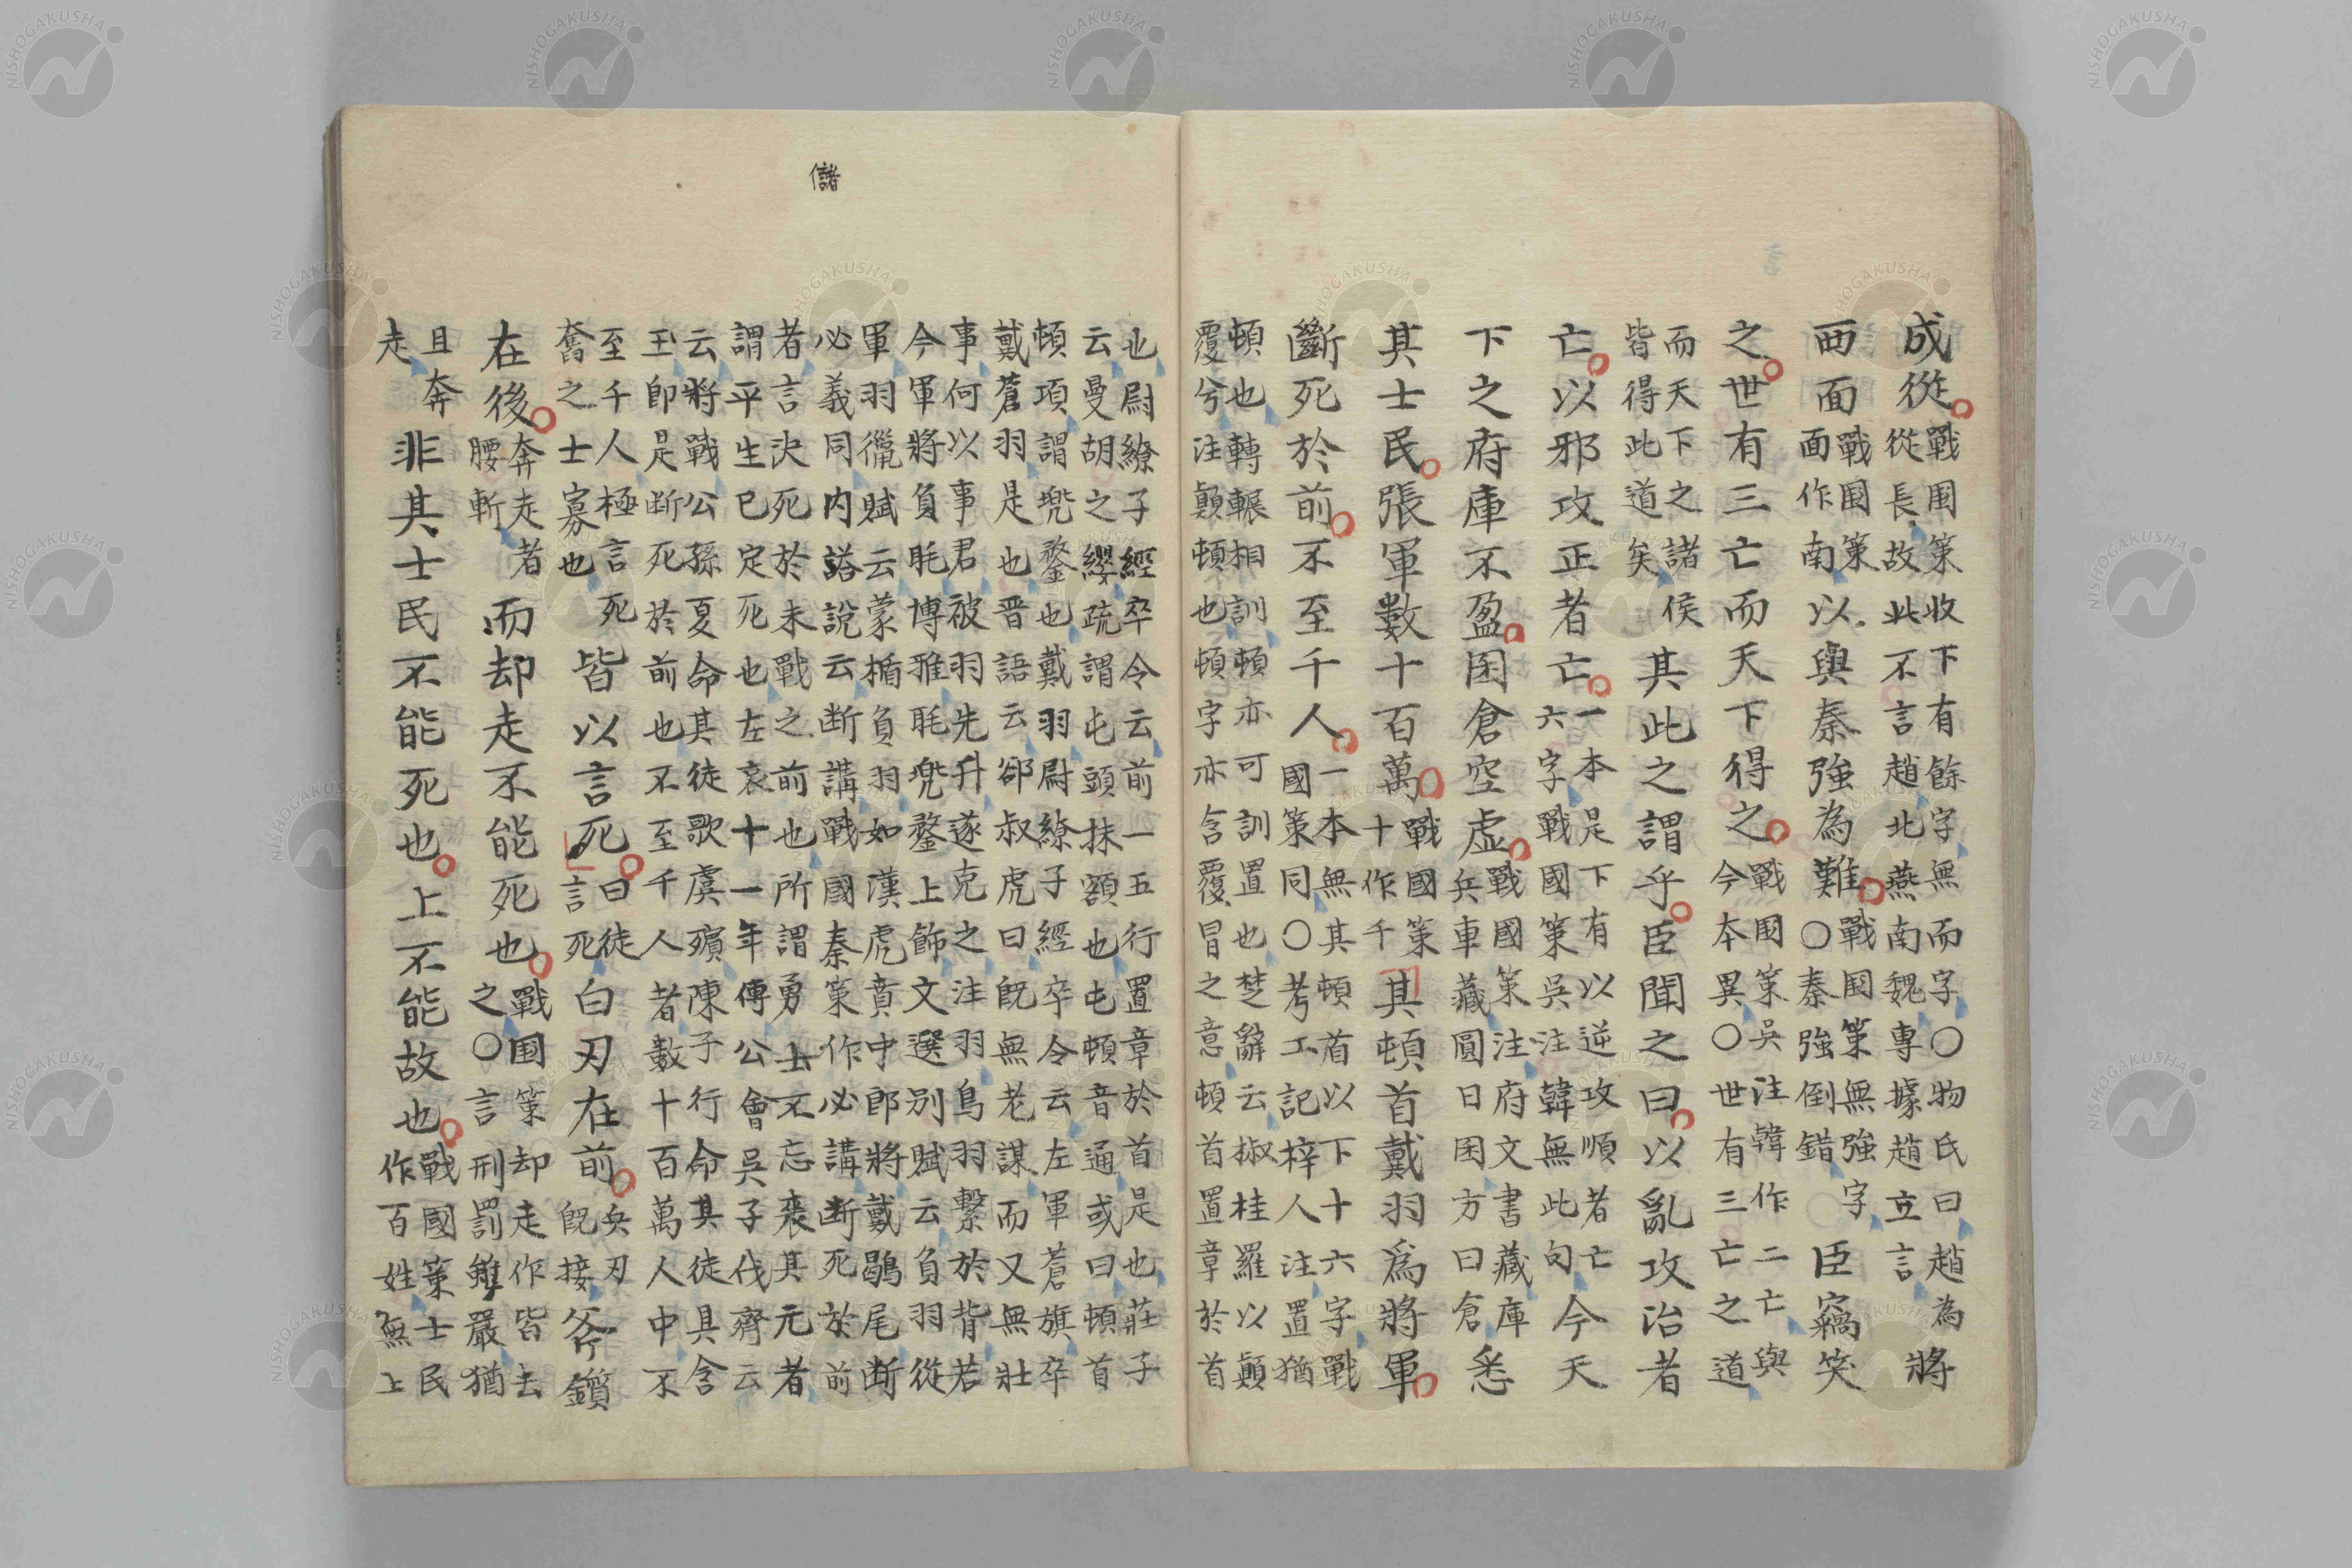 成從戰国策收下有餘字無而字〇物氏曰趙為將
從從長故此不言趙北燕南魏專據趙立言
西面戰国策以與秦強為難戰国策無強字臣竊笑
面作南〇秦強倒錯
之世有三亡而天下得之戰国策吳注韓作二亡與
今本異〇世有三亡之道
而天下之諸侯其此之謂乎臣聞之曰以亂攻治者
皆得此道矣
亡以邪攻正者亡一本是下有以逆攻順者亡今天
六字戰國策吳注韓無此句
下之府庫不盈囷倉空虛戰國策注府文書藏庫悉
兵車藏圓曰囷方曰倉
其士民張軍數十百萬戰國策其頓首戴羽爲將軍
十作千
斷死於前不至千人一本無其頓首以下十六字戰
國策同〇考工記梓人注置猶
頓也轉輾相訓頓亦可訓置也楚辭云椒桂羅以顛
覆兮注顛頓也頓字亦含覆冒之意頓首置章於首
也尉繚子經卒令云前一五行置章於首是也莊子
云曼胡之纓疏謂屯頭抹額也屯頓音通或曰頓首
頓項謂兜鍪也戴羽尉繚子經卒令云左軍蒼旗卒
戴蒼羽是也晋語云郤叔虎曰既無老謀而又無壯
事何以事君被羽先升遂克之注羽鳥羽繫於背若
今軍將負眊博雅眊兜鍪上飾文選別賦云負羽從
軍羽獵賦云蒙楯負羽如漢虎賁中郎將戴鶡尾断
必義同内謠說云断講戰國秦策作必講断死於前
者言決死於未戰之前也所謂勇士不忘喪其元者
謂平生已定死也左哀十一年傳公會吳子伐齊云
云將戰公孫夏命其徒歌虞殯陳子行命其徒具含
玉即是断死於前也不至千人者數十百萬人中不
至千人極言死皆以言死曰徒白刃在前兵刃斧鑕
奮之士寡也言死既接
在後奔走者而却走不能死也戰国策却走作皆去
腰斬之〇言刑罰雖嚴猶
且奔非其士民不能死也上不能故也戰國策士民
走作百姓無上
儲